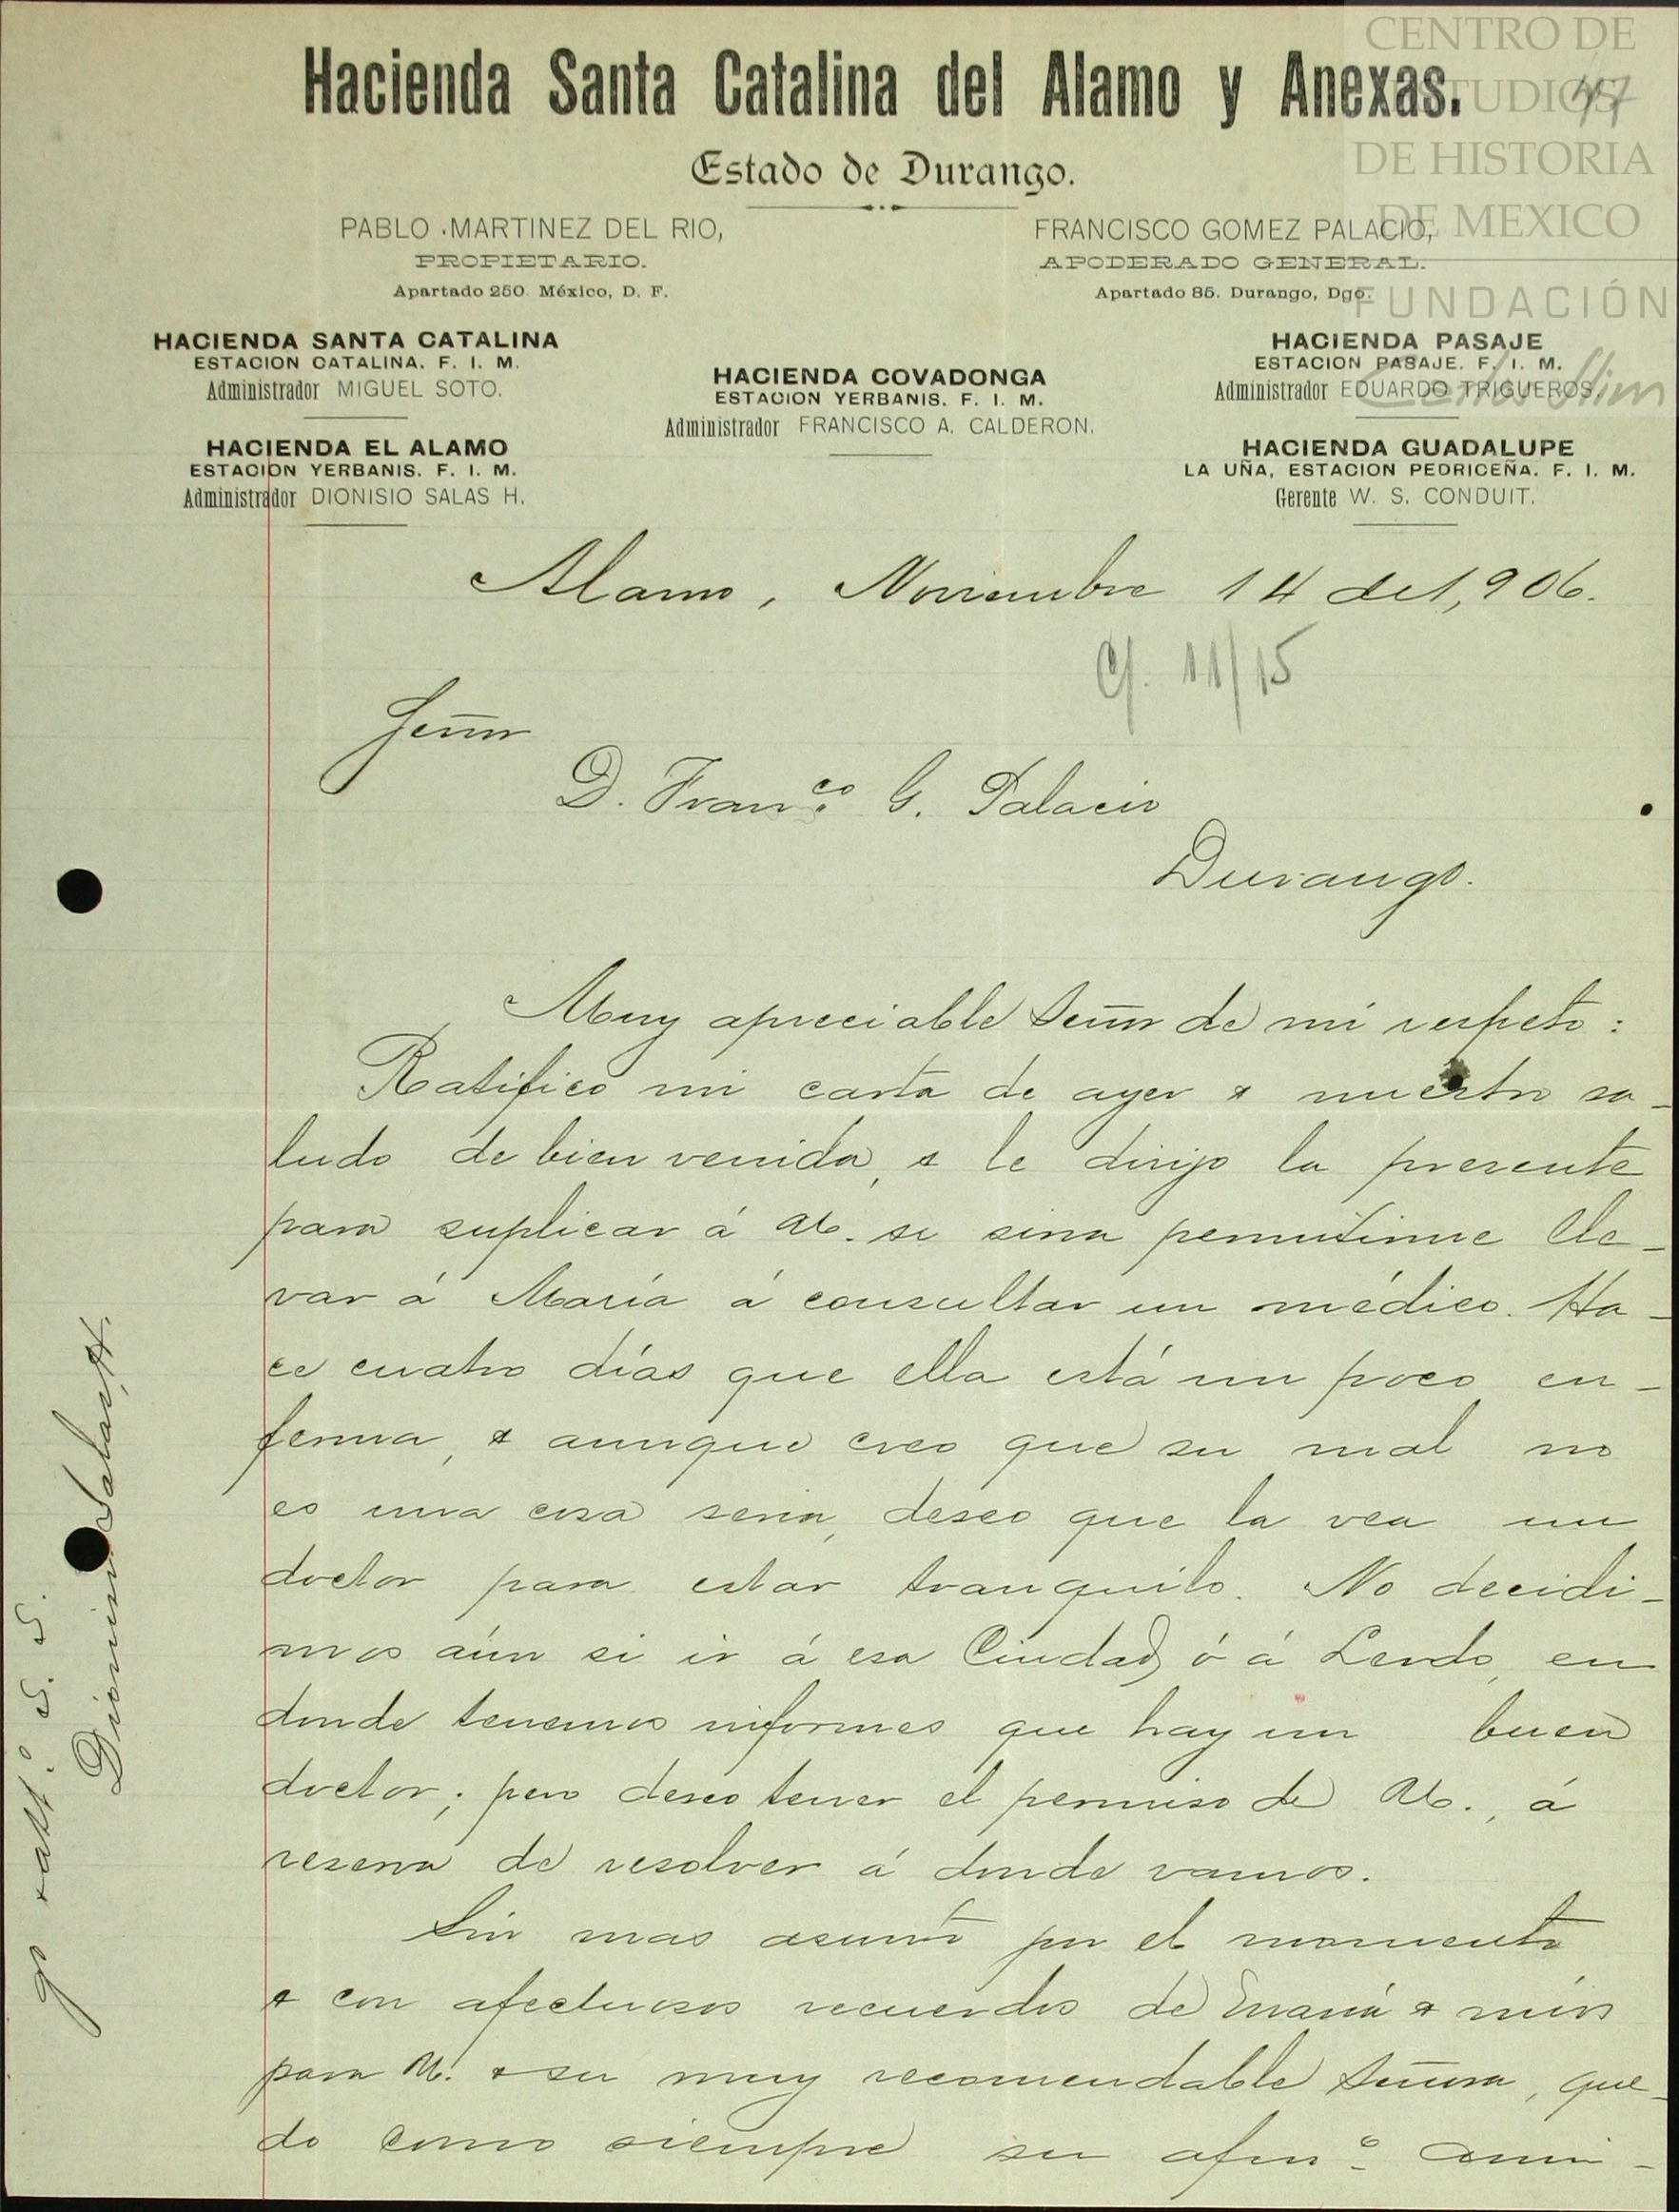 CENTRO DE
ESTUDIOS
DE HISTORIA
DE MEXICO
FUNDACIÓN
Carlos Slim
47
Hacienda Santa Catalina del Alamo y Anexas.
Estado de Durango.
PABLO MARTINEZ DEL RIO,
PROPIETARIO.
Apartado 250. México, D. F.
FRANCISCO GOMEZ PALACIO,
APODERADO GENERAL.
Apartado 85. Durango, Dgo.
HACIENDA SANTA CATALINA
ESTACION CATALINA. F. I. M.
Administrador MIGUEL SOTO.
HACIENDA EL ALAMO
ESTACION YERBANIS. F. I. M.
Administrador DIONISIO SALAS H.
HACIENDA COVADONGA
ESTACION YERBANIS. F. I. M.
Administrador FRANCISCO A. CALDERON.
HACIENDA PASAJE
ESTACION PASAJE. F. I. M.
Administrador EDUARDO TRIGUEROS.
HACIENDA GUADALUPE
LA UÑA, ESTACION PEDRICEÑA. F. I. M.
Gerente W. S. CONDUIT.
Alamo, Noviembre 14 de 1,906.
C/. 11/15
Señor
D. Fran.co G. Palacio
Durango.
Muy apreciable Señor de mi respeto:
Ratifico mi carta de ayer & nuestro sa-
ludo de bien venida, & le dirijo la presente
para suplicar á U. se sirva permitirme lle-
var á María á consultar un médico. Ha-
ce cuatro días que ella está un poco en-
ferma, & aunque creo que su mal no
es una cosa seria, deseo que la vea un
doctor para estar tranquilo. No decidi-
mos aún si ir á esa Ciudad ó á Lerdo, en
donde tenemos informes que hay un buen
doctor; pero deseo tener el permiso de U., á
reserva de resolver á donde vamos.
Sin mas asunto por el momento
& con afectuosos recuerdos de María & míos
para U. & su muy recomendable Señora, que-
do como siempre su afmo. ami-
go & att.o S. S.
Dionisio Salas H.